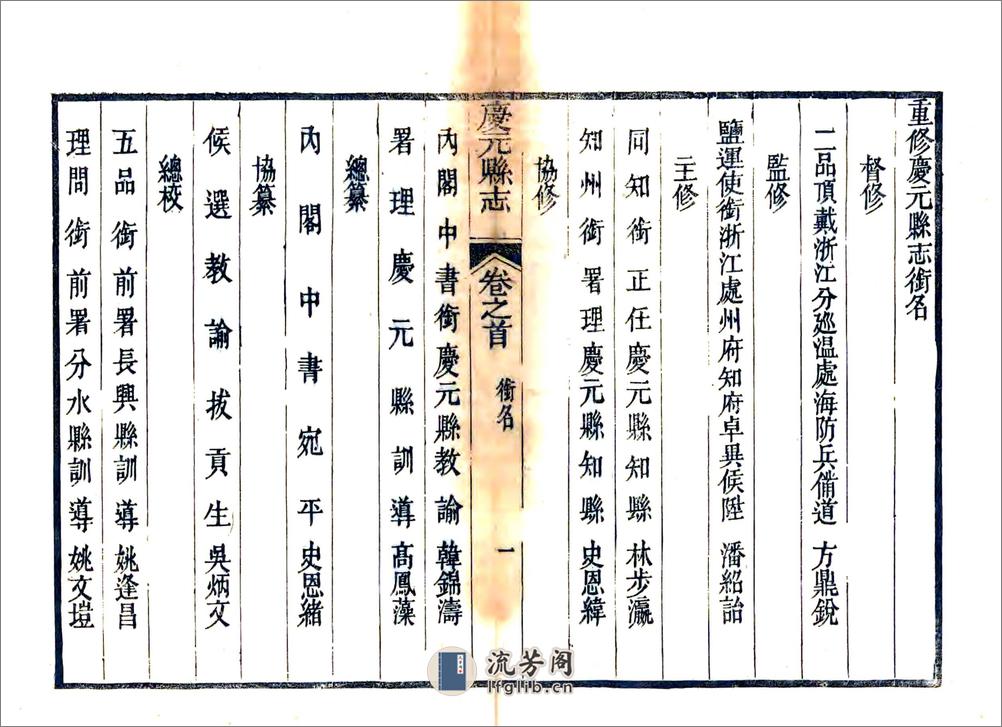 重修慶元縣志銜名
督修
二品頂戴浙江分廵温處海防兵備道方鼎銳
監修
鹽運使銜浙江處州府知府卓異侯陞潘紹詒
主修
同知銜正任慶元縣知縣林步瀛
知州銜署理慶元縣知縣史恩緯
協修
慶元縣志
卷之首
銜名
一
內閣中書銜慶元縣教諭韓錦濤
署理慶元縣訓導髙鳳藻
總纂
內閣中書宛平史恩緒
協纂
候選教諭拔貢生吳炳文
總校
五品銜前署長興縣訓導姚逢昌
理問銜前署分水縣訓導姚文瑄
流芳阁
lfglib.cn